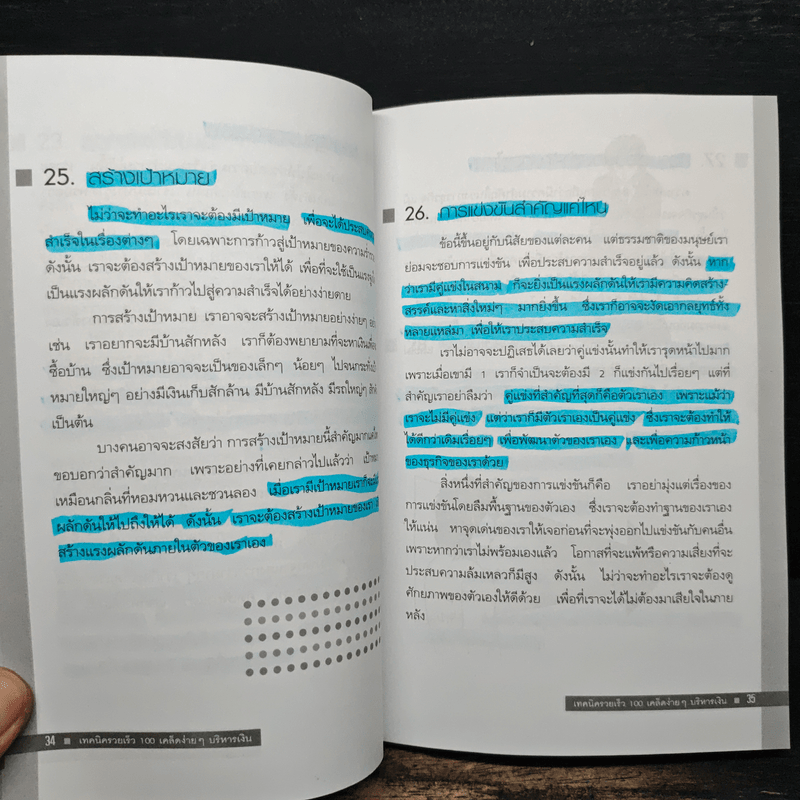 25. สร้างเป้าหมาย
ไม่ว่าจะทำอะไรเราจะต้องมีเป้าหมาย เพื่อจะได้ประสบ
สำเร็จในเรื่องต่างๆ โดยเฉพาะการก้าวสู่เป้าหมายของความ
ดังนั้น เราจะต้องสร้างเป้าหมายของเราให้ได้ เพื่อที่จะใช้เป็นแรง
เป็นแรงผลักดันให้เราก้าวไปสู่ความสำเร็จได้อย่างง่ายดาย
การสร้างเป้าหมาย เราอาจจะสร้างเป้าหมายอย่างง่ายๆ
เช่น เราอยากจะมีบ้านสักหลัง เราก็ต้องพยายามที่จะหาเงินเพื่อ
ซื้อบ้าน ซึ่งเป้าหมายอาจจะเป็นของเล็กๆ น้อยๆ ไปจนกระทั่ง
หมายใหญ่ๆ อย่างมีเงินเก็บสักล้าน มีบ้านสักหลัง มีรถใหญ่ๆ
เป็นต้น
บางคนอาจจะสงสัยว่า การสร้างเป้าหมายนี้สำคัญมาก
ขอบอกว่าสำคัญมาก เพราะอย่างที่เคยกล่าวไปแล้วว่า
เหมือนกลิ่นที่หอมหวานและชวนลอง เมื่อเรามีเป้าหมายเราก็จะ
ผลักดันให้ไปถึงให้ได้ ดังนั้น เราจะต้องสร้างเป้าหมายของเรา
สร้างแรงผลักดันภายในตัวของเราเอง
34 ■ เทคนิครวยเร็ว 100 เคล็ดง่ายๆ บริหารเงิน
26. การแข่งขันสำคัญแค่ไหน
ข้อนี้ขึ้นอยู่กับนิสัยของแต่ละคน แต่ธรรมชาติของมนุษย์เรา
ย่อมจะชอบการแข่งขัน เพื่อประสบความสำเร็จอยู่แล้ว ดังนั้น หาก
ว่าเรามีคู่แข่งในสนาม ก็จะยิ่งเป็นแรงผลักดันให้เรามีความคิดสร้าง-
สรรค์และหาสิ่งใหม่ๆ มากยิ่งขึ้น ซึ่งเราก็อาจจะงัดเอากลยุทธ์ทั้ง
หลายแหล่มา เพื่อให้เราประสบความสำเร็จ
เราไม่อาจจะปฏิเสธได้เลยว่าคู่แข่งนั้นทำให้เรารุดหน้าไปมาก
เพราะเมื่อเขามี 1 เราก็จำเป็นจะต้องมี 2 ก็แข่งกันไปเรื่อยๆ แต่ที่
สำคัญเราอย่าลืมว่า คู่แข่งที่สำคัญที่สุดก็คือตัวเราเอง เพราะแม้ว่า
เราจะไม่มีคู่แข่ง แต่ว่าเราก็มีตัวเราเองเป็นคู่แข่ง ซึ่งเราจะต้องทำให้
ได้ดีกว่าเดิมเรื่อยๆ เพื่อพัฒนาตัวของเราเอง และเพื่อความก้าวหน้า
ของธุรกิจของเราด้วย
สิ่งหนึ่งที่สำคัญของการแข่งขันก็คือ เราอย่ามุ่งแต่เรื่องของ
การแข่งขันโดยลืมพื้นฐานของตัวเอง ซึ่งเราจะต้องทำฐานของเราเอง
ให้แน่น หาจุดเด่นของเราให้เจอก่อนที่จะพุ่งออกไปแข่งขันกับคนอื่น
เพราะหากว่าเราไม่พร้อมเองแล้ว โอกาสที่จะแพ้หรือความเสี่ยงที่จะ
ประสบความล้มเหลวก็มีสูง ดังนั้น ไม่ว่าจะทำอะไรเราจะต้องดู
ศักยภาพของตัวเองให้ดีด้วย เพื่อที่เราจะได้ไม่ต้องมาเสียใจในภาย
หลัง
เทคนิครวยเร็ว 100 เคล็ดง่ายๆ บริหารเงิน ■ 35